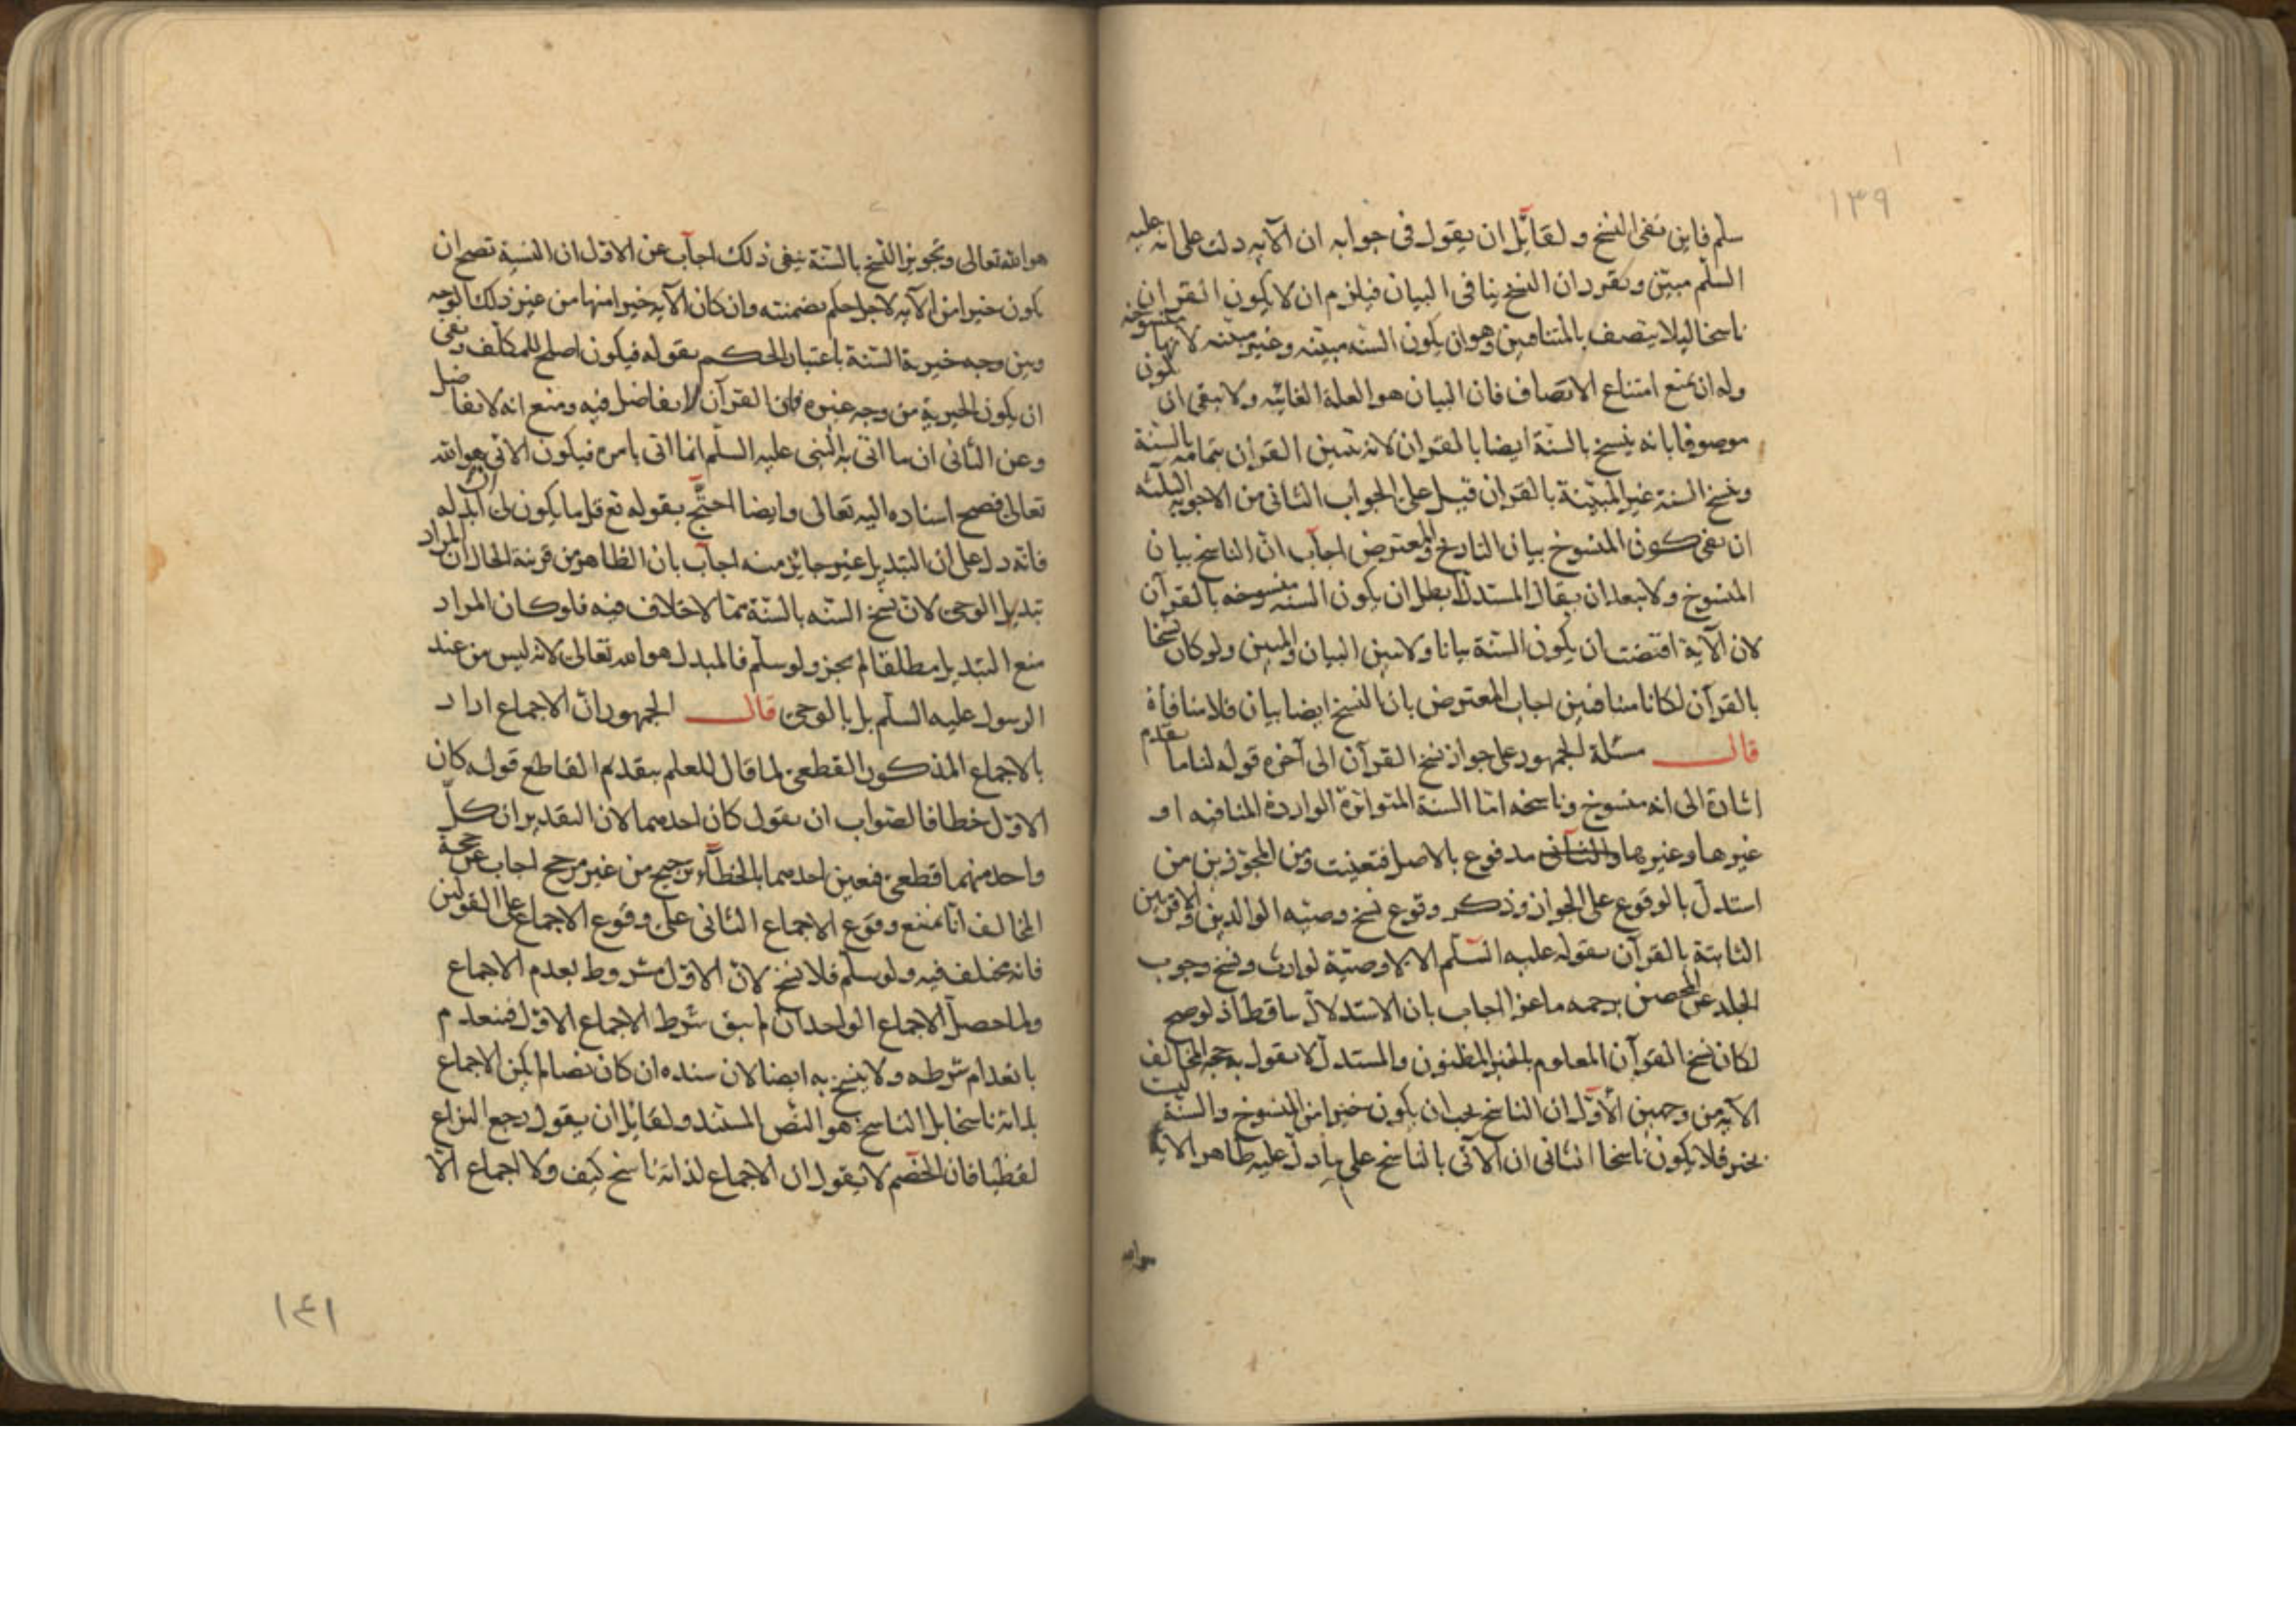 ١٣٩
سلم فاين نفى النسخ ولقائل ان يقول فى جوابه ان الآيه دلت على انه عليه
السلم مبين وتقرر ان النسخ ينافى البيان فيلزم ان لا يكون القران
ناسخا ليلا يتصف بالمتنافيين وهو ان يكون السنه مبينه وغير مبينه لانها منسوخه
وله ان يمنع امتناع الاتصاف فان البيان هو العلة الغائيه ولا ينفى ان يكون
موصوفا بانه ينسخ بالسنة ايضا بالقران لانه تبيين القران بتمامه بالسنة
ونسخ السنة غير المبيّنة بالقران قيل على الجواب الثانى من الاجوبه الثلثه
ان نفى كون المنسوخ بيان الناسخ والمعترض اجاب انّ الناسخ بيان
المنسوخ ولا يبعد ان يقال المستدل ابطل ان يكون السنه منسوخه بالقرآن
لان الآية اقتضت ان يكون السنة بيانا ولا بين البيان والمبين ولو كان نسخا
بالقرآن لكانا متنافيين اجاب المعترض بان النسخ ايضا بيان فلا منافاة
قال مسئلة الجمهور على جواز نسخ القرآن الى آخره قوله لنا ما تقدم
اشارة الى انه منسوخ وناسخه امّا السنة المتواترة الواردة المنافيه او
غيرها وغيرها والثانى مدفوع بالاصل فتعينت ومن المجوّزين من
استدلّ بالوقوع على الجواز وذكر وقوع نسخ وصيّه الوالدين والاقربين
الثابتة بالقرآن بقوله عليه السّلم الا لا وصيّة لوارث ونسخ وجوب
الجلد عن المحصن برجمه ماعزا اجاب بان الاستدلال ساقط اذ لو صح
لكان نسخ القرآن المعلوم بالخبر المظنون والمستدلّ لا يقول به حجه المخالف
الآيه من وجهين الأوّل ان الناسخ يجب ان يكون خيرا من المنسوخ والسنّة ليست
بخير فلا يكون ناسخا الثانى ان الآتى بالناسخ على ما دلّ عليه ظاهر الآية
هو الله
هو الله تعالى وتجويز النسخ بالسّنة ينفى ذلك اجاب عن الاوّل ان السّنة تصح ان
يكون خيرا من الآيه لاجل حكم تضمنته وان كان الآيه خيرا منها من غير ذلك الوجه
وبين وجه خيرية السّنة باعتبار الحكم بقوله فيكون اصلح للمكلّف ونفى
ان يكون الخيرية من وجه غيره فان القرآن لا تفاضل فيه ومنع انه لا تفاضل
وعن الثانى ان ما اتى به النبى عليه السلّم انما اتى بامره فيكون الآتى هو الله
تعالى فصح اسناده اليه تعالى وايضا احتجّ بقوله تع قل ما يكون لى ان ابدله
فانّه دل على ان التبديل غير جائز منه اجاب بان الظاهر من قرينة الحال ان المراد
تبديل الوحى لانّ نسخ السّنه بالسّنة ممّا لا خلاف فيه فلو كان المراد
منع التبديل مطلقا لم يجز ولو سلّم فالمبدل هو الله تعالى لانه ليس من عند
الرسول عليه السلّم بل بالوحى قال الجمهور انّ الاجماع اراد
بالاجماع المذكور القطعى لما قال للعلم بتقديم القاطع قوله كان
الاوّل خطا فالصّواب ان يقول كان احدهما لان التقدير ان كلّ
واحد منهما قطعى فتعين احدهما بالخطاء ترجيح من غير مرجح اجاب عن حجة
المخالف انا نمنع وقوع الاجماع الثانى على وقوع الاجماع على القولين
فانه مختلف فيه ولو سلّم فلا نسخ لانّ الاوّل مشروط بعدم الاجماع
ولما حصل الاجماع الواحد آن لم يبق شرط الاجماع الاوّل فينعدم
بانعدام شرطه ولا ينسخ به ايضا لان سنده ان كان نصا لم يكن الاجماع
بذاته ناسخا بل الناسخ هو النّص المستند ولقائل ان يقول رجع النزاع
لفظيا فان الخصم لا يقول ان الاجماع لذاته ناسخ كيف ولا اجماع الا
١٤١